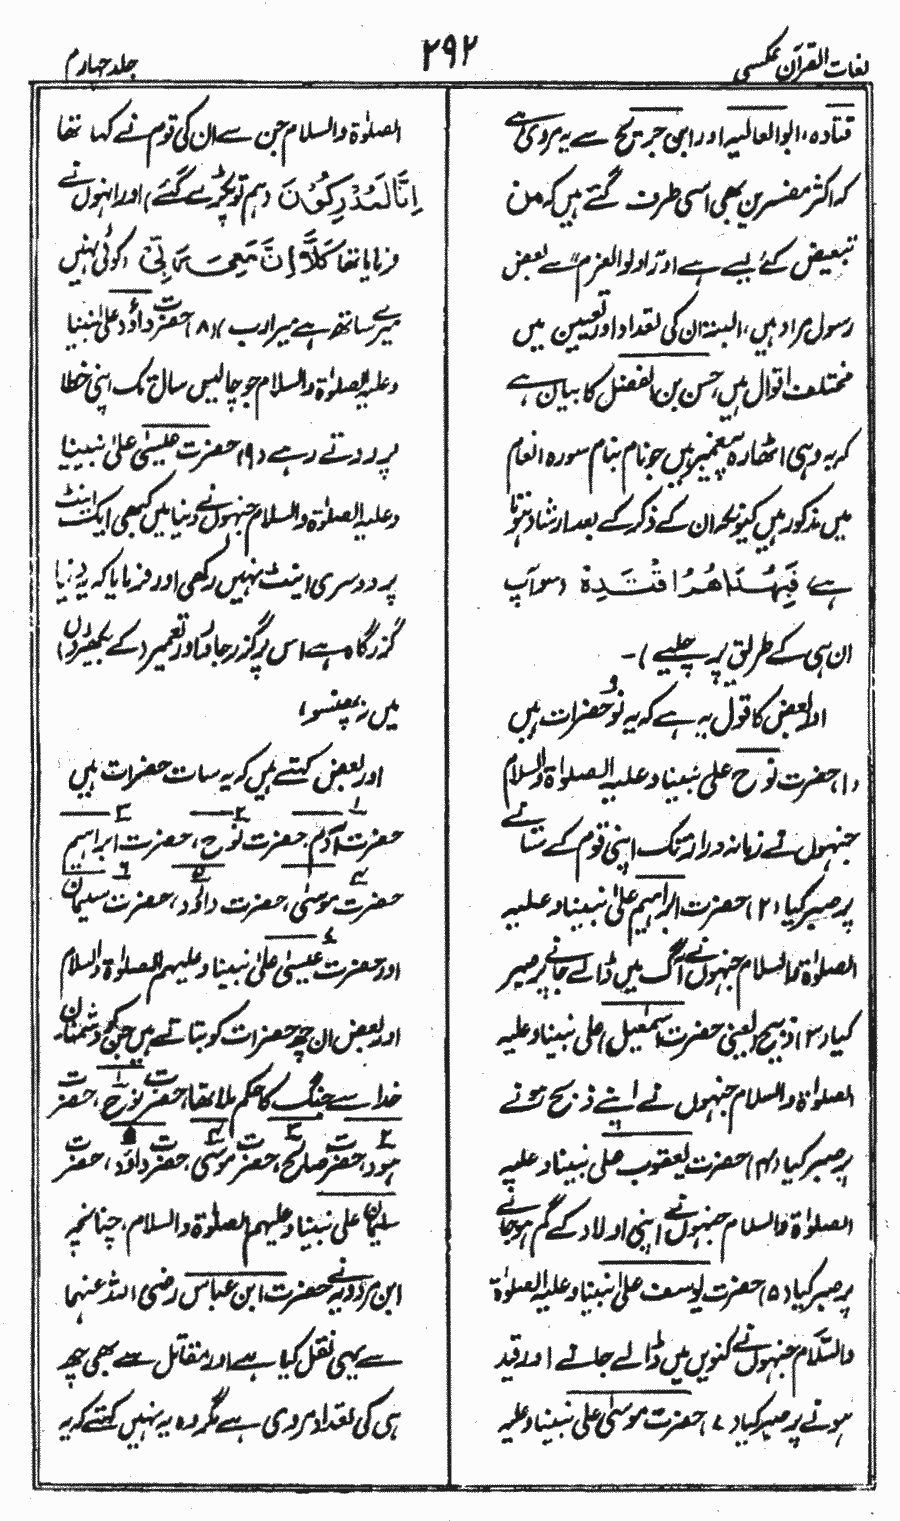 لغات القرآن عکسی
۲۹۲
جلد چہارم
قتادہ، ابو العالیہ اور ابن جریج سے یہ مروی ہے
کہ اکثر مفسرین بھی اسی طرف گئے ہیں کہ من
تبعیض کے لیے ہے اور اولو العزم سے بعض
رسول مراد ہیں، البتہ ان کی تعداد اور تعیین میں
مختلف اقوال ہیں، حسن بن الفضل کا بیان ہے
کہ یہ وہی اٹھارہ پیغمبر ہیں جو نام بنام سورہ انعام
میں مذکور ہیں کیونکہ ان کے ذکر کے بعد ارشاد ہوتا
ہے فَبِهُدَاهُمُ اقْتَدِهْ (سو آپ
ان ہی کے طریق پر چلیے)۔
اور بعض کا قول یہ ہے کہ یہ نو حضرات ہیں
(۱) حضرت نوح علی نبینا و علیہ الصلوٰۃ والسلام
جنہوں نے زمانہ دراز تک اپنی قوم کے ستانے
پر صبر کیا (۲) حضرت ابراہیم علیٰ نبینا و علیہ
الصلوٰۃ والسلام جنہوں نے آگ میں ڈالے جانے پر صبر
کیا (۳) ذبیح یعنی حضرت اسمٰعیل علی نبینا و علیہ
الصلوٰۃ والسلام جنہوں نے اپنے ذبح ہونے
پر صبر کیا (۴) حضرت یعقوب علی نبینا و علیہ
الصلوٰۃ والسلام جنہوں نے اپنی اولاد کے گم ہو جانے
پر صبر کیا (۵) حضرت یوسف علیٰ نبینا و علیہ الصلوٰۃ
والسلام جنہوں نے کنویں میں ڈالے جانے اور قید
ہونے پر صبر کیا (۷) حضرت موسیٰ علی نبینا و علیہ
الصلوٰۃ والسلام جن سے ان کی قوم نے کہا تھا
اِنَّا لَمُدْرَكُوْنَ (ہم تو پکڑے گئے) اور انہوں نے
فرمایا تھا كَلَّا اِنَّ مَعِیَ رَبِّیْ (کوئی نہیں
میرے ساتھ ہے میرا رب) (۸) حضرت داؤد علی نبینا
و علیہ الصلوٰۃ والسلام جو چالیس سال تک اپنی خطا
پر روتے رہے (۹) حضرت عیسیٰ علیٰ نبینا
و علیہ الصلوٰۃ والسلام جنہوں نے دنیا میں کبھی ایک اینٹ
پر دوسری اینٹ نہیں رکھی اور فرمایا کہ یہ دنیا
گزرگاہ ہے اس پر گزر جاؤ اور تعمیر (کے بکھیڑوں)
میں نہ پھنسو،
اور بعض کہتے ہیں کہ یہ سات حضرات ہیں
حضرت آدم، حضرت نوح، حضرت ابراہیم
حضرت موسیٰ، حضرت داؤد، حضرت سلیمان
اور حضرت عیسیٰ علیٰ نبینا و علیہم الصلوٰۃ والسلام
اور بعض ان چھ حضرات کو بتاتے ہیں جن کو دشمنان
خدا سے جنگ کا حکم ملا تھا، حضرت نوح، حضرت
ہود، حضرت صالح، حضرت موسیٰ، حضرت داؤد، حضرت
سلیمان علی نبینا و علیہم الصلوٰۃ والسلام، چنانچہ
ابن مردویہ نے حضرت ابن عباس رضی اللہ عنہما
سے یہی نقل کیا ہے اور مقاتل سے بھی چھ
ہی کی تعداد مروی ہے مگر وہ یہ نہیں کہتے کہ یہ